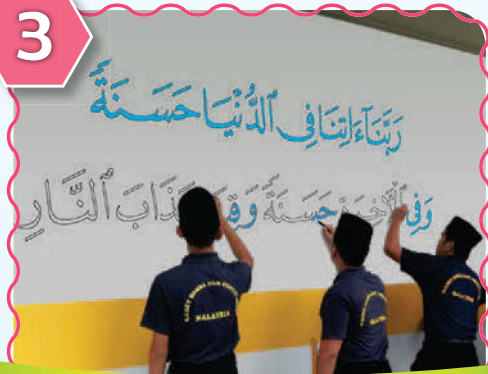 3
رَبَّنَآ ءَاتِنَا فِى ٱلدُّنْيَا حَسَنَةً
وَفِى ٱلْأَخِرَةِ حَسَنَةً وَقِ عَذَابَ ٱلنَّارِ
MALAYSIA
MALAYSIA